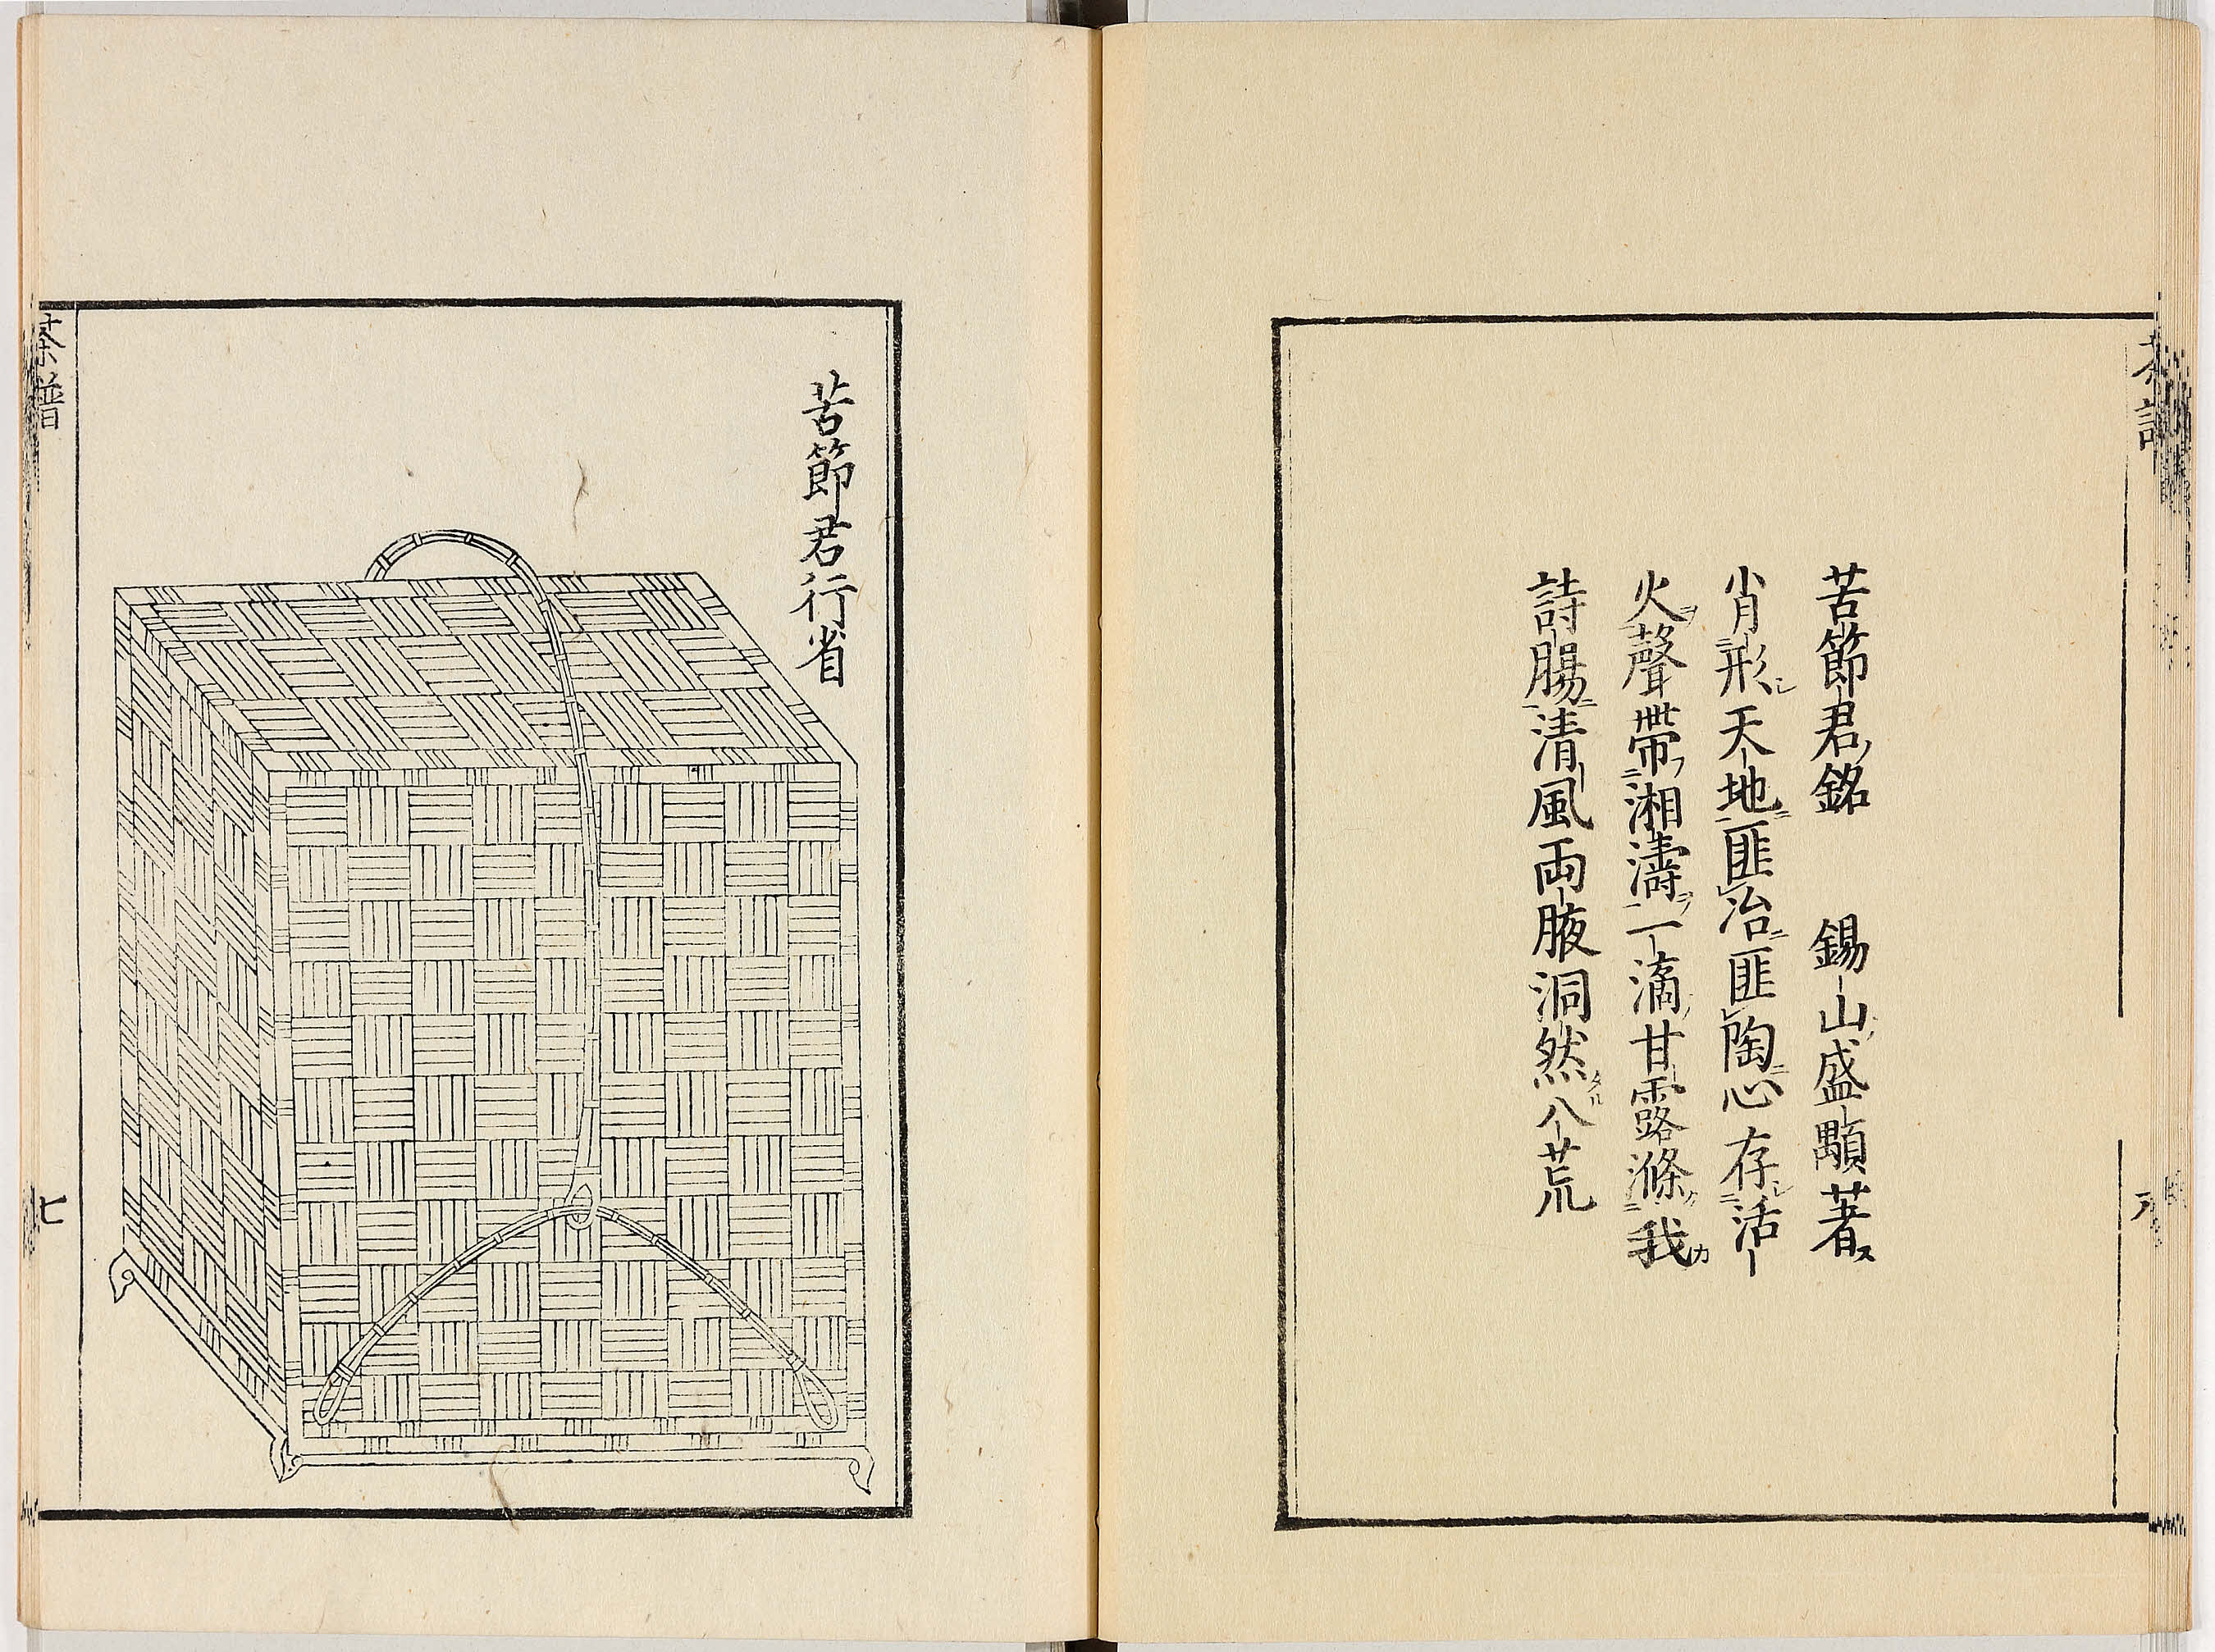 苦節君ノ銘　錫山ノ盛顒著ス
肖形天地匪冶匪陶心存活
火聲帶湘濤一滴甘露滌我
詩腸清風兩腋洞然八荒
苦節君行省
茶譜
七